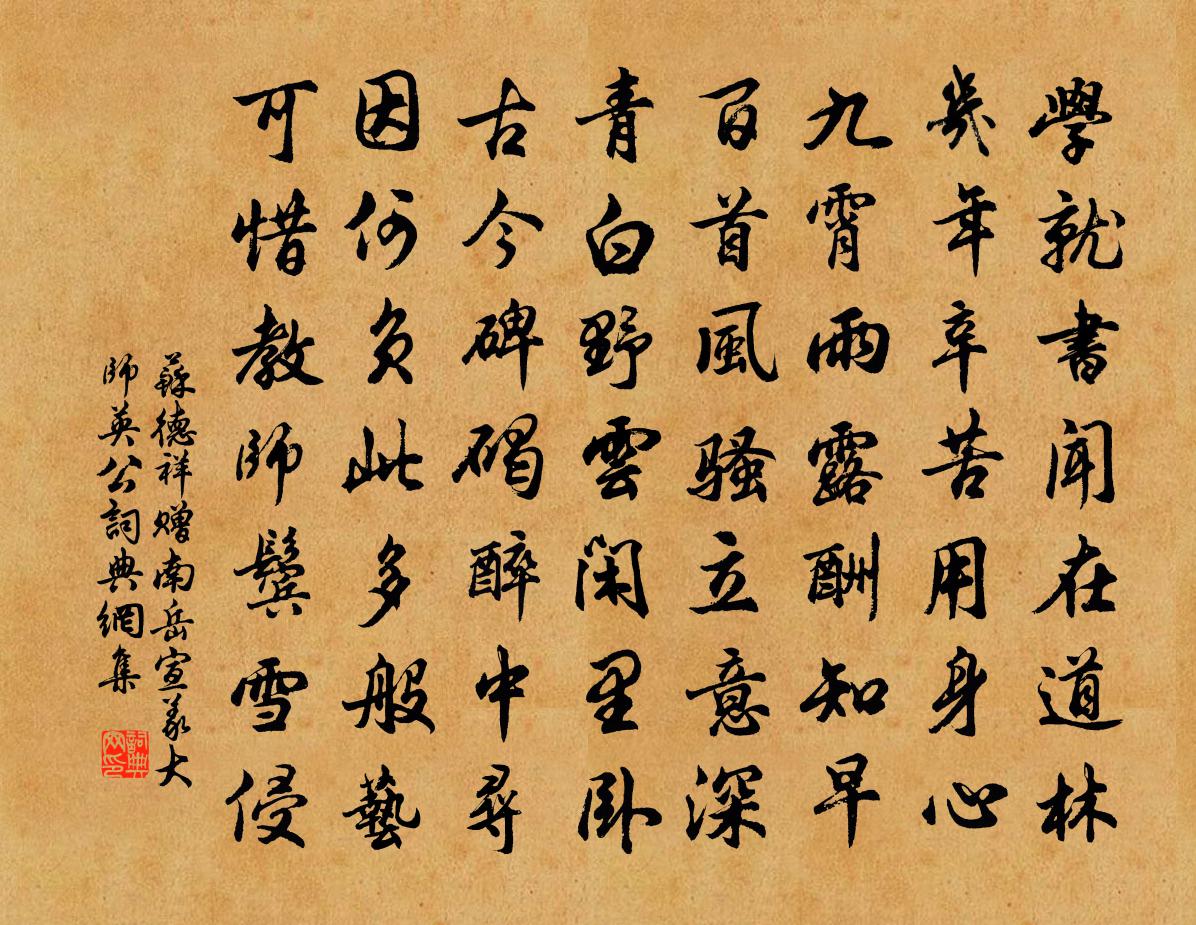 學就書聞在道林
幾年辛苦用身心
九霄雨露酬知早
百首風騷立意深
青白野雲閑里臥
古今碑碣醉中尋
因何負此多般藝
可惜教師鬢雪侵
蘇德祥贈南岳宣義大
師英公詞典網集
詞典網印